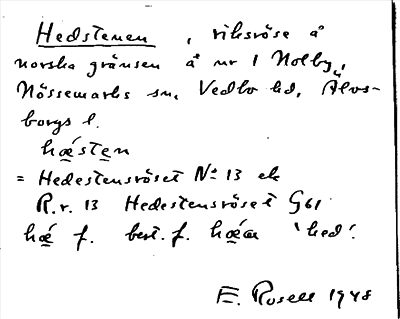 Hedstenen, riksröse å
norska gränsen å nr 1 Nolby,
Nössemarks sn, Vedbo hd, Älvs-
borgs l.
hǽsten
= Hedestensröset No 13 ek
R.r. 13 Hedestensröset G61
hǽ f. best. f. hǽa 'hed'.
E. Rosell 1948